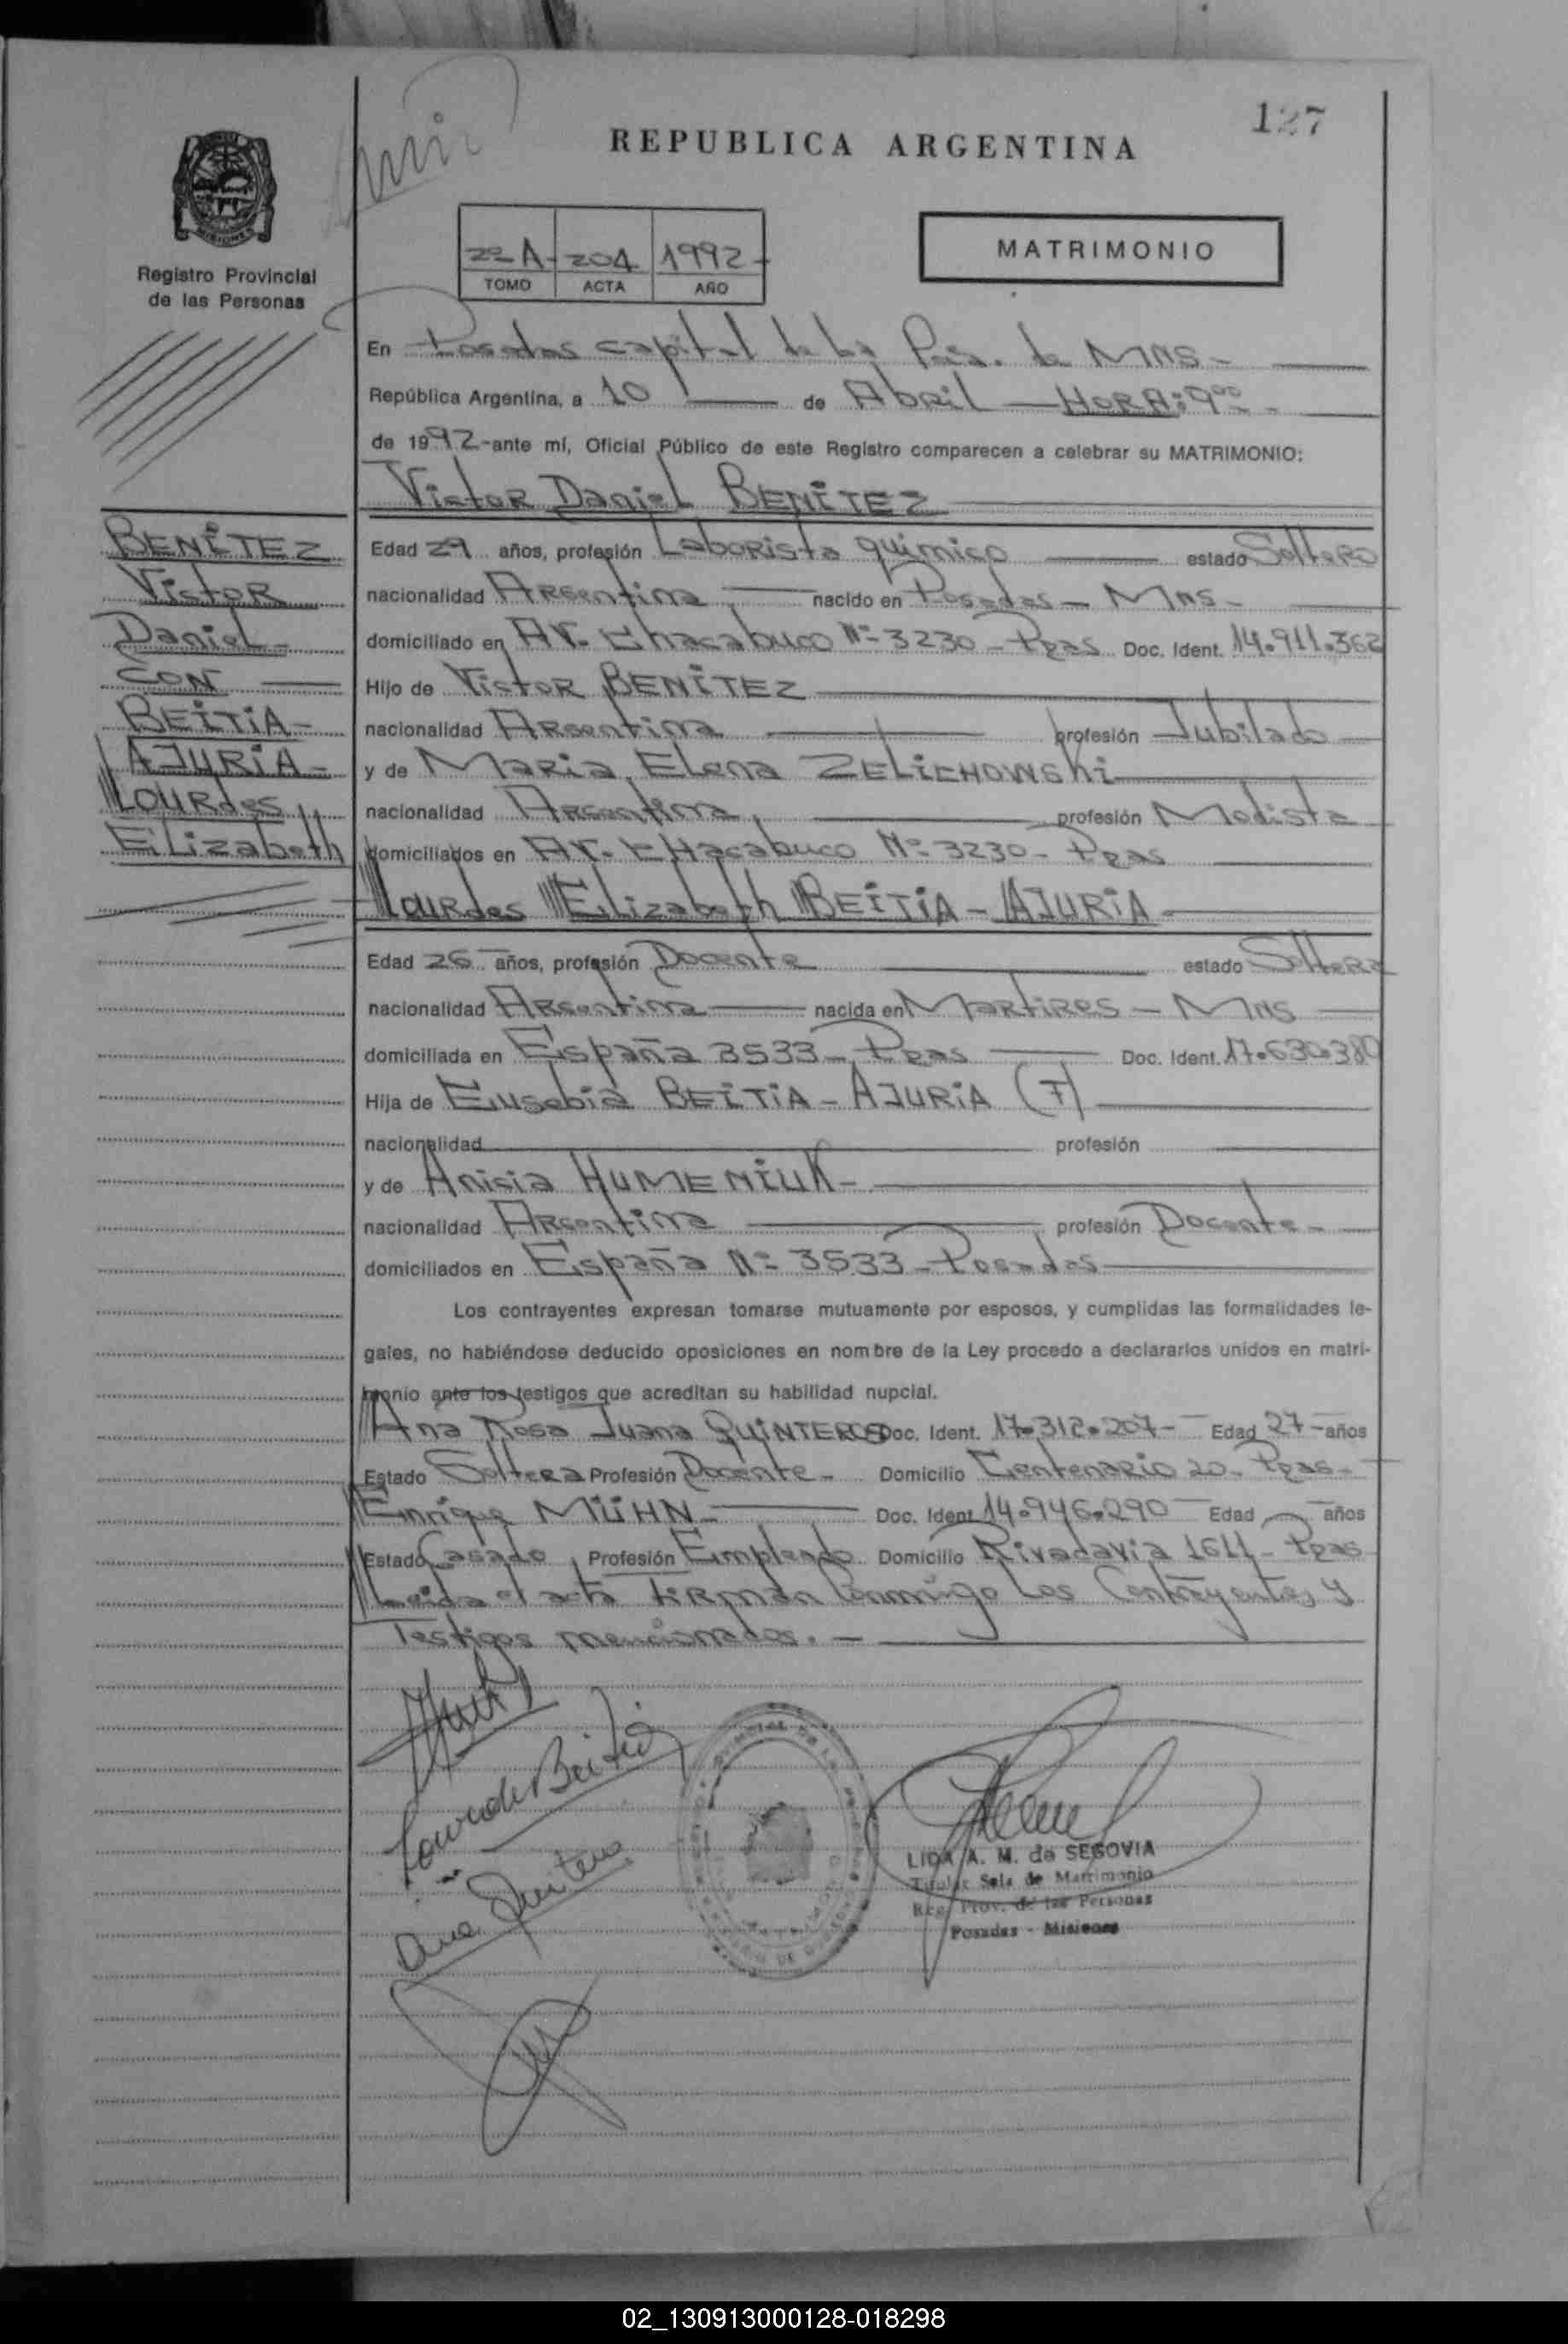 127
REPUBLICA ARGENTINA
MISIONES
Registro Provincial
de las Personas
2º A - 204 1992 -
TOMO ACTA AÑO
MATRIMONIO
En Posadas capital de la Pcia. de MNS -
República Argentina, a 10 de Abril — HORA: 9ºº -
de 1992 - ante mí, Oficial Público de este Registro comparecen a celebrar su MATRIMONIO:
Victor Daniel BENÍTEZ
BENÍTEZ
Victor
Daniel -
CON
BEITIA -
AJURIA -
Lourdes
Elizabeth
Edad 29 años, profesión Laborista químico estado Soltero
nacionalidad Argentina nacido en Posadas - Mns -
domiciliado en Av. Chacabuco Nº 3230 - Pdas Doc. Ident. 14.911.362
Hijo de Victor BENÍTEZ
nacionalidad Argentina profesión Jubilado
y de Maria Elena ZELICHOWSKI
nacionalidad Argentina profesión Modista
domiciliados en Av. CHacabuco Nº 3230 - Pdas
Lourdes Elizabeth BEITIA - AJURIA
Edad 26 años, profesión Docente estado Soltera
nacionalidad Argentina nacida en Martires - Mns
domiciliada en España 3533 - Pdas Doc. Ident. 17.630.380
Hija de Eusebia BEITIA - AJURIA (F)
nacionalidad profesión
y de Anisia HUMENIUK -
nacionalidad Argentina profesión Docente -
domiciliados en España Nº 3533 - Posadas
Los contrayentes expresan tomarse mutuamente por esposos, y cumplidas las formalidades le-
gales, no habiéndose deducido oposiciones en nombre de la Ley procedo a declararlos unidos en matri-
monio ante los testigos que acreditan su habilidad nupcial.
Ana Rosa Juana QUINTEROS Doc. Ident. 17.312.207 - Edad 27 - años
Estado Soltera Profesión Docente - Domicilio Centenario 20 - Pdas -
Enrique MÜHN - Doc. Ident. 14.946.290 Edad años
Estado Casado Profesión Empleado Domicilio Rivadavia 1611 - Pdas
Leida el acta firman conmigo los Contrayentes y
Testigos mencionados. -
Lourdes Beitia
Ana Quinteros
LIDA A. M. de SEGOVIA
Titular Sala de Matrimonio
Reg. Prov. de las Personas
Posadas - Misiones
02_130913000128-018298